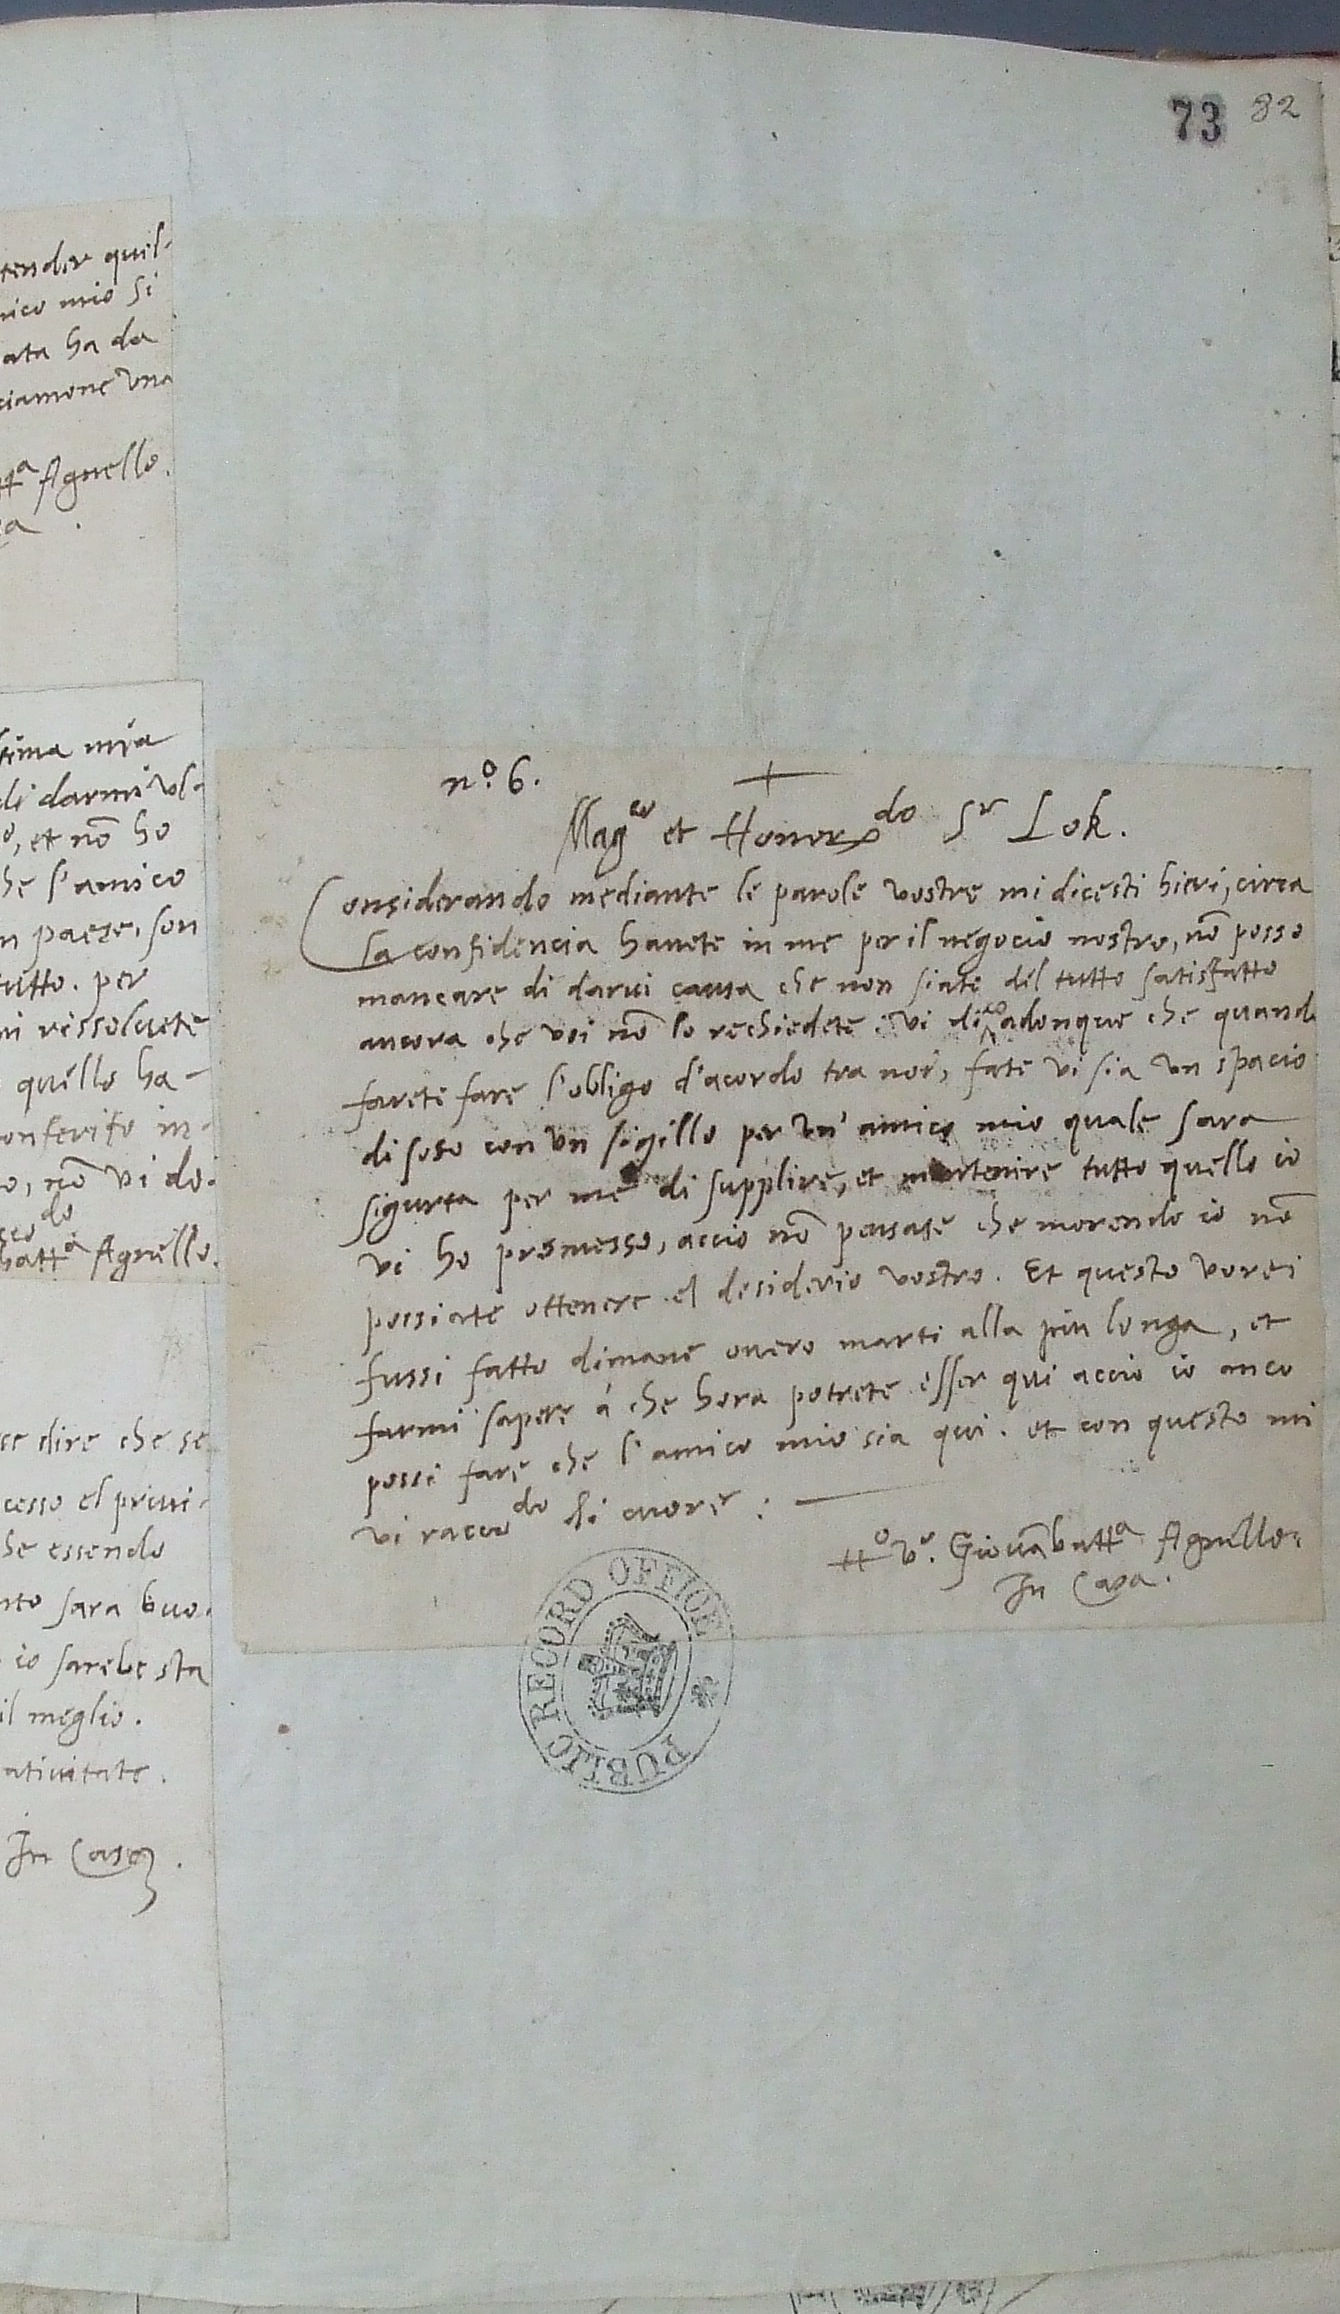 73 82
tender quel-
nico mio si
ata ha da
ciamone una
tt^a Agnello.
sima mia
di darmi vol-
et nõ ho
he l'amico
n paese, son
tutto. per
ni rissoluete
quello ha-
onferito in-
o, nõ vi do-
batt^a Agnello.
ce dire che se
cesso el priui-
he essendo
nto sara buo-
io sarebe sta
il meglio.
atiuitate.
In Casa.
n.º 6.
+
Mag^co et Honor^do S^r Lok.
Considerando mediante le parole vostre mi dicesti hieri, circa
la confidencia hauete in me per il negocio nostro, nõ posso
mancare di darui causa che non siate del tutto satisfatto
ancora che voi nõ lo rechiedete: vi dico adonque che quand
farete fare l'obligo d'acordo tra noi, fate vi sia un spacio
di soto con un sigillo per un' amico mio quale sara
sigurta per me di supplire, et mantenire tutto quello io
vi ho promesso, accio nõ pensate che morendo io nõ
possiate ottenere el desiderio vostro. Et questo vorei
fussi fatto dimane ouero marti alla piu longa, et
farmi sapere á che hora potrete esser qui accio io anco
possi fare che l'amico mio sia qui. et con questo mi
vi racco^do di cuore:
V^o. Giouãbatt^a Agnello.
In Casa.
PUBLIC RECORD OFFICE